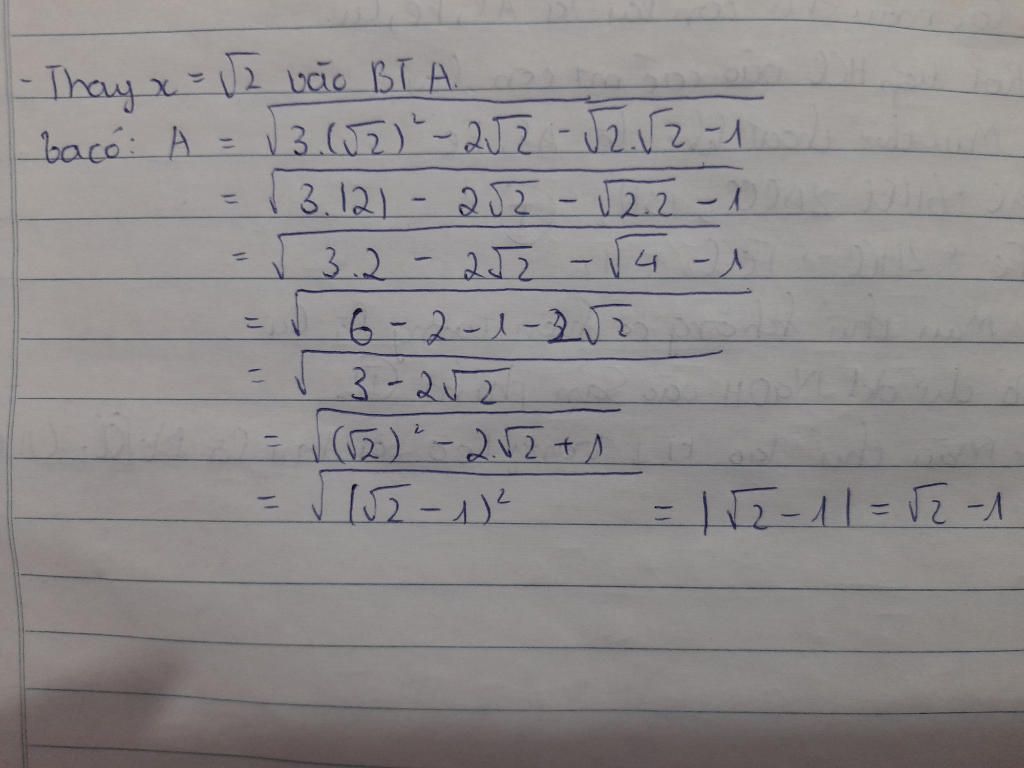 - Thay x = √2 vào BT A.
Ta có: A = √(3.(√2)² - 2√2 - √2.√2 - 1)
= √(3.|2| - 2√2 - √2.2 - 1)
= √(3.2 - 2√2 - √4 - 1)
= √(6 - 2 - 1 - 2√2)
= √(3 - 2√2)
= √((√2)² - 2.√2 + 1)
= √((√2 - 1)²) = |√2 - 1| = √2 - 1